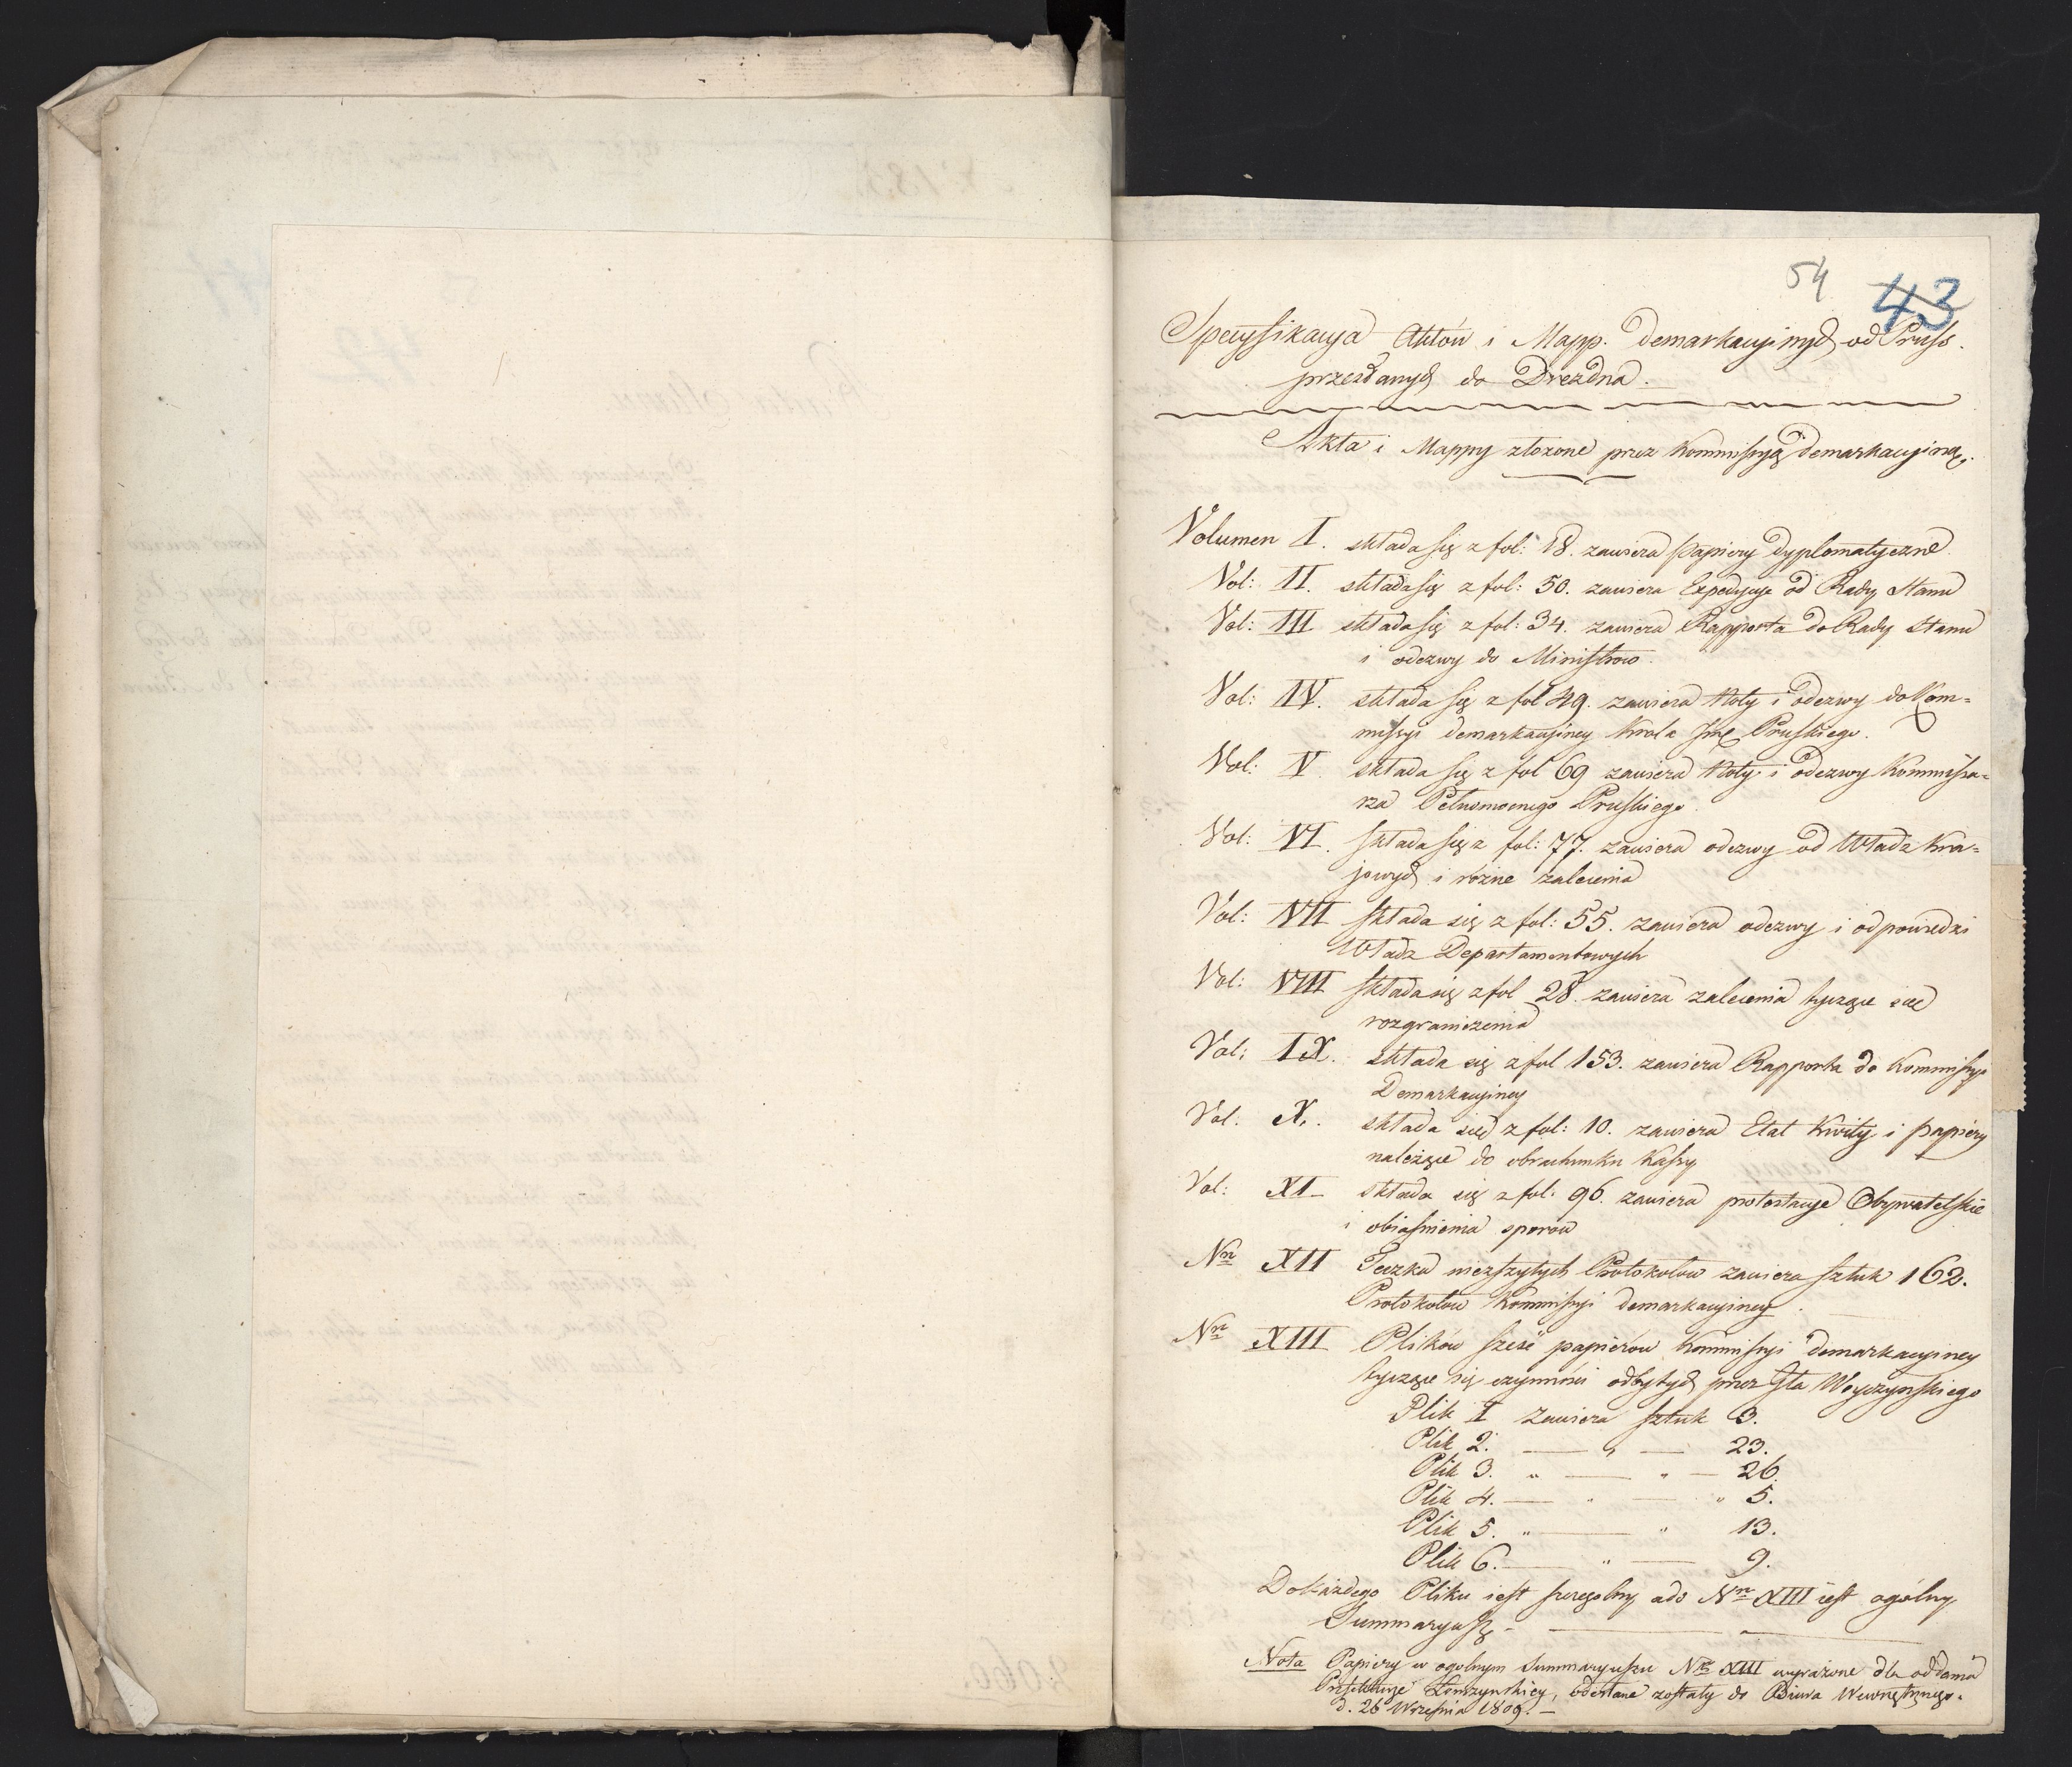 54 43
Specyfikacya Aktów i Mapp. demarkacyinych od Pruss.
przesłanych do Drezdna.
Akta i Mappy złozone przez Kommissyą demarkacyiną.
Volumen I. składa się z fol: 18. zawiera papiery dyplomatyczne.
Vol: II. składa się z fol: 50. zawiera Expedycye od Rady Stanu
Vol: III składa się z fol: 34. zawiera Rapporta do Rady Stanu
i odezwy do Ministrow.
Vol: IV. składa się z fol 49. zawiera Noty i odezwy do Kom=
missyi demarkacyiney Krola Jmć Pruskiego.
Vol: V. składa się z fol 69 zawiera Noty i odezwy Kommissa=
rza Pełnomocnego Pruskiego.
Vol: VI. składa się z fol: 77. zawiera odezwy od Władz Kra=
jowych i rózne zalecenia
Vol: VII składa się z fol: 55. zawiera odezwy i odpowiedzi
Władz Departamentowych
Vol: VIII składa się z fol 28. zawiera zalecenia tyczące się
rozgraniczenia
Vol: IX. składa się z fol 153. zawiera Rapporta do Kommissyi
Demarkacyiney
Vol: X. składa się z fol: 10. zawiera Etat Kwity i papiery
należące do obrachunku Kassy
Vol: XI składa się z fol: 96. zawiera protestacye Obywatelskie
i obiasnienia sporów
Nrn XII Teczka niezszytych Protokołow zawiera sztuk 162.
Protokołow Kommissyi demarkacyiney.
Nrn XIII Plikow sześć papierow Kommissyi demarkacyiney
tyczące się czynności odbytych przez Gła Woyczynskiego
Plik I zawiera sztuk 3.
Plik 2. — „ — 23.
Plik 3. „ — „ — 26.
Plik 4. — „ — „ 5.
Plik 5. „ — „ 13.
Plik 6. — „ — 9.
Do każdego Pliku iest szczegolny, a do Nrn XIII iest ogólny
Summaryusz. —
Nota Papiery w ogolnym Summaryuszu Nrn XIII wyrażone dla oddania
Prefekturze Łomzynskiey, odesłane zostały do Biura Wewnętrznego.
d. 26 Września 1809. —